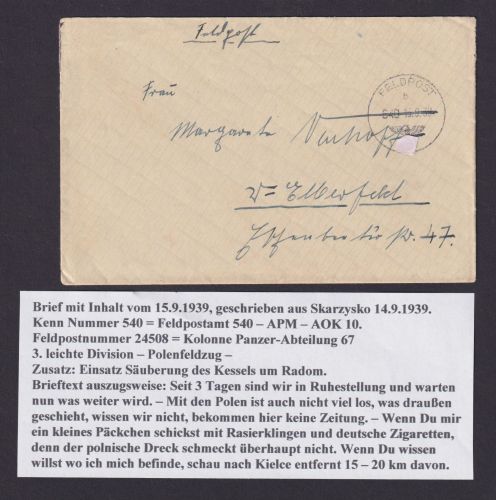 Feldpost
Frau
Margarete Vinhoff
FELDPOST
b
W=Elberfeld
47.
Brief mit Inhalt vom 15.9.1939, geschrieben aus Skarzysko 14.9.1939.
Kenn Nummer 540 = Feldpostamt 540 – APM – AOK 10.
Feldpostnummer 24508 = Kolonne Panzer-Abteilung 67
3. leichte Division – Polenfeldzug –
Zusatz: Einsatz Säuberung des Kessels um Radom.
Brieftext auszugsweise: Seit 3 Tagen sind wir in Ruhestellung und warten
nun was weiter wird. – Mit den Polen ist auch nicht viel los, was draußen
geschieht, wissen wir nicht, bekommen hier keine Zeitung. – Wenn Du mir
ein kleines Päckchen schickst mit Rasierklingen und deutsche Zigaretten,
denn der polnische Dreck schmeckt überhaupt nicht. Wenn Du wissen
willst wo ich mich befinde, schau nach Kielce entfernt 15 – 20 km davon.